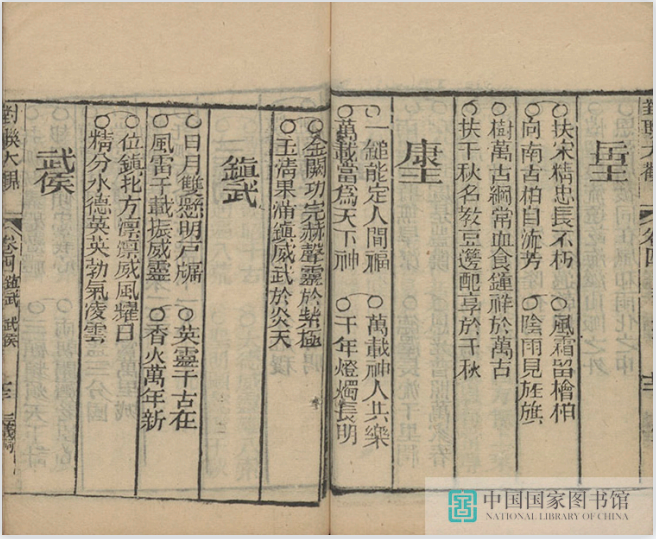 對聯大觀
卷四
岳王
○扶宋精忠長不朽　○風霜留檜柏
○向南古柏自流芳　○陰雨見旌旗
○樹萬古綱常血食鍾祥於萬古
○扶千秋名教豆籩配享於千秋
康王
○一鎚能定人間福　○萬載神人共樂
○萬載當為天下神　○千年燈燭長明
○金闕功完赫聲靈於紫極
○玉清果滿鎮威武於炎天
鎮武
○日月雙懸明戸牖　○英靈千古在
○風雷千載振威靈　○香火萬年新
○位鎮北方凜凜威風耀日
○精分水德英英勃氣凌雲
武侯
對聯大觀
卷四 鎮武 武侯
中国国家图书馆
NATIONAL LIBRARY OF CHINA